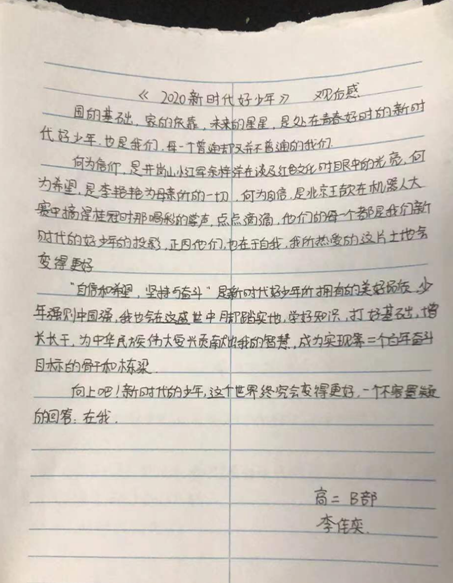 《2020新时代好少年》 观后感
国的基础，家的依靠，未来的星星，是处在青春好时的新时
代好少年，也是我们，每一个普通却又并不普通的我们
何为信仰，是开岗山小红军余梓洋在谈及红色文化时眼中的光亮，何
为希望，是李艳艳为母亲所的一切，何为自信，是北京王歆在机器人大
赛中摘得桂冠时那喝彩的掌声，点点滴滴，他们的每一个都是我们新
时代的好少年的投影，正因他们，也在于自我，我所热爱的这片土地会
变得更好
"自信和希望，坚持与奋斗"是新时代好少年所拥有的美好品质，少
年强则中国强，我也会在这盛世中脚踏实地，学好知识，打好基础，增
长才干，为中华民族伟大复兴贡献我的智慧，成为实现第二个百年奋斗
目标的骨干和栋梁.
向上吧！新时代的少年，这个世界终究会变得更好，一个不容置疑
的回答：在我.
高二 B部
李佳奕